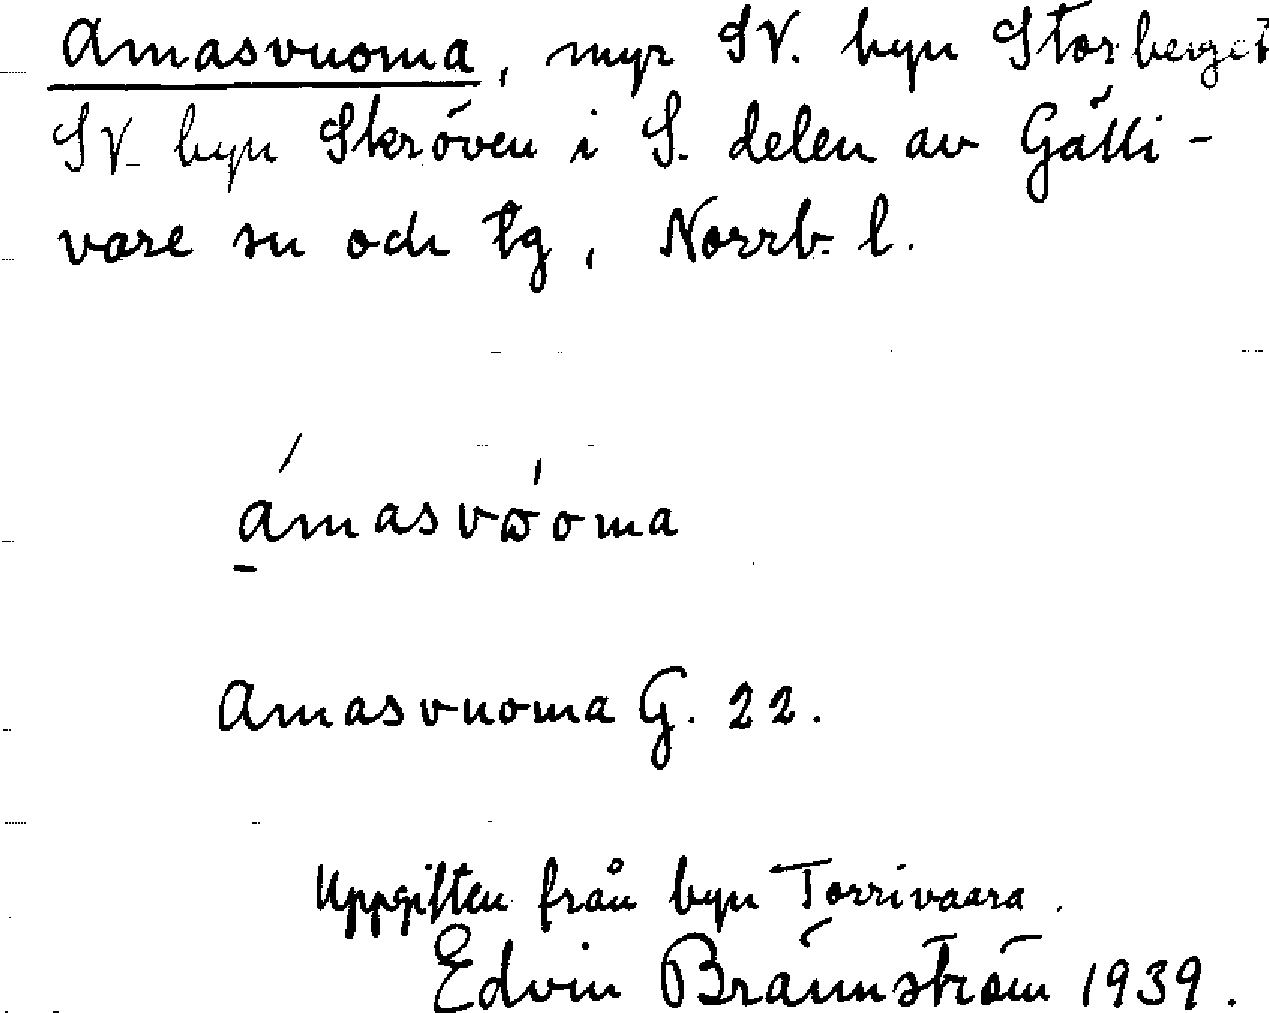 Amasvuoma, myr SV. byn Storberget
SV. byn Skröven i S. delen av Gälli-
vare sn och tg, Norrb. l.
ámasvωoma
Amasvuoma G. 22.
Uppgiften från byn Torrivaara.
Edvin Brännström 1939.